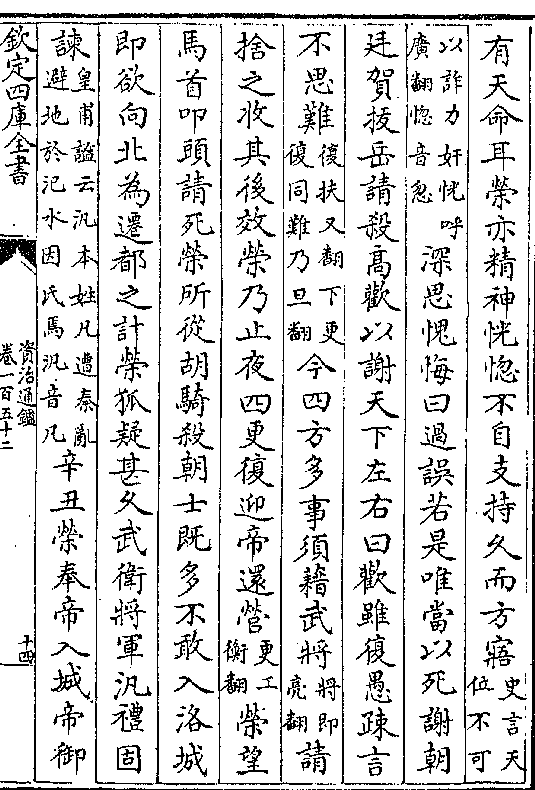 有天命耳榮亦精神恍惚不自支持久而方寤史言天位不可
以詐力奸恍呼廣翻惚音忽深思愧悔曰過誤若是唯當以死謝朝
廷賀拔岳請殺高歡以謝天下左右曰歡雖復愚疎言
不思難復扶又翻下更復同難乃旦翻今四方多事須藉武將將即亮翻請
捨之收其後效榮乃止夜四更復迎帝還營更工衡翻榮望
馬首叩頭請死榮所從胡騎殺朝士既多不敢入洛城
即欲向北為遷都之計榮狐疑甚久武衛將軍汎禮固
諫皇甫謐云汎本姓凡遭秦亂避地於汜水因氏焉汎音凡辛丑榮奉帝入城帝御
欽定四庫全書
資治通鑑
卷一百五十二
十四